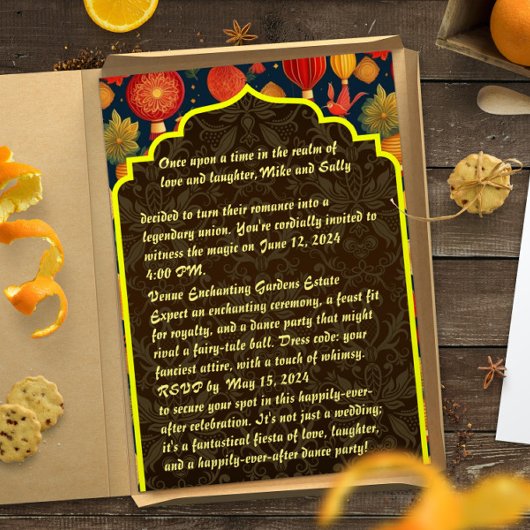 Once upon a time in the realm of
love and laughter, Mike and Sally
decided to turn their romance into a
legendary union. You're cordially invited to
witness the magic on June 12, 2024
4:00 PM.
Venue Enchanting Gardens Estate
Expect an enchanting ceremony, a feast fit
for royalty, and a dance party that might
rival a fairy-tale ball. Dress code: your
fanciest attire, with a touch of whimsy.
RSVP by May 15, 2024
to secure your spot in this happily-ever-
after celebration. It's not just a wedding;
it's a fantastical fiesta of love, laughter,
and a happily-ever-after dance party!